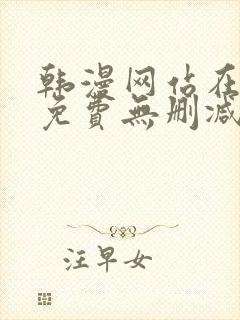 韩漫网站在
免費無删减
汪早女